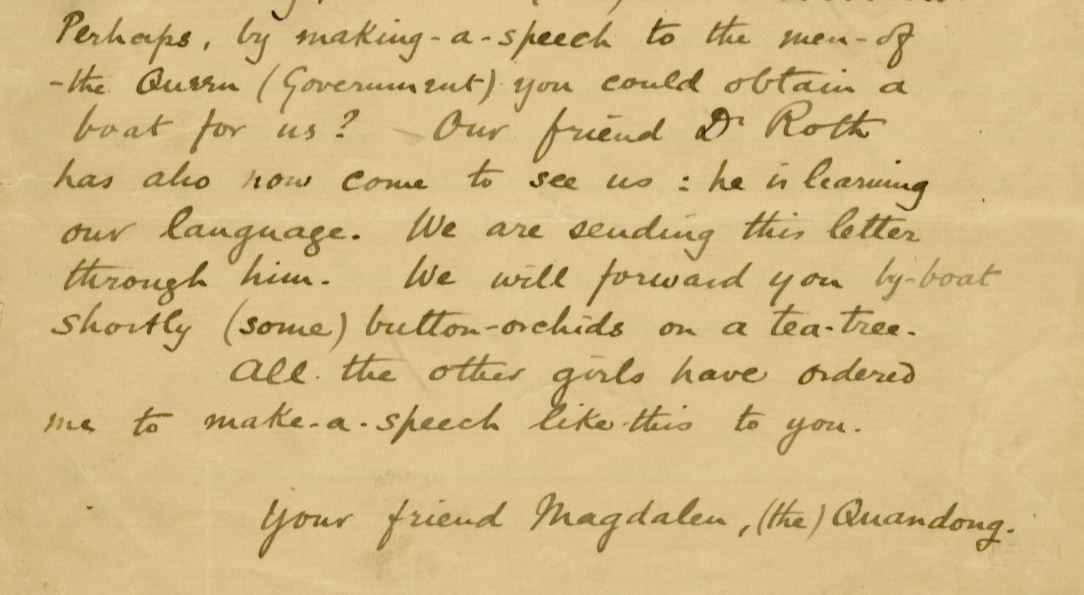 Perhaps, by making-a-speech to the men-of
-the Queen (Government) you could obtain a
boat for us? Our friend Dr Roth
has also now come to see us : he is learning
our language. We are sending this letter
through him. We will forward you by-boat
shortly (some) button-orchids on a tea-tree.
All the other girls have ordered
me to make-a-speech like-this to you.
Your friend Magdalen, (the) Quandong.